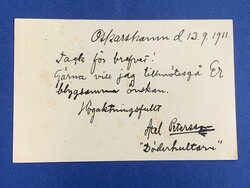 Oskarshamn d 13.9.1911
Tack för brefvet!
Gärna vill jag tillmötesgå Er
blygsamma önskan.
Högaktningsfullt
Axel Peterson
"Döderhultarn"